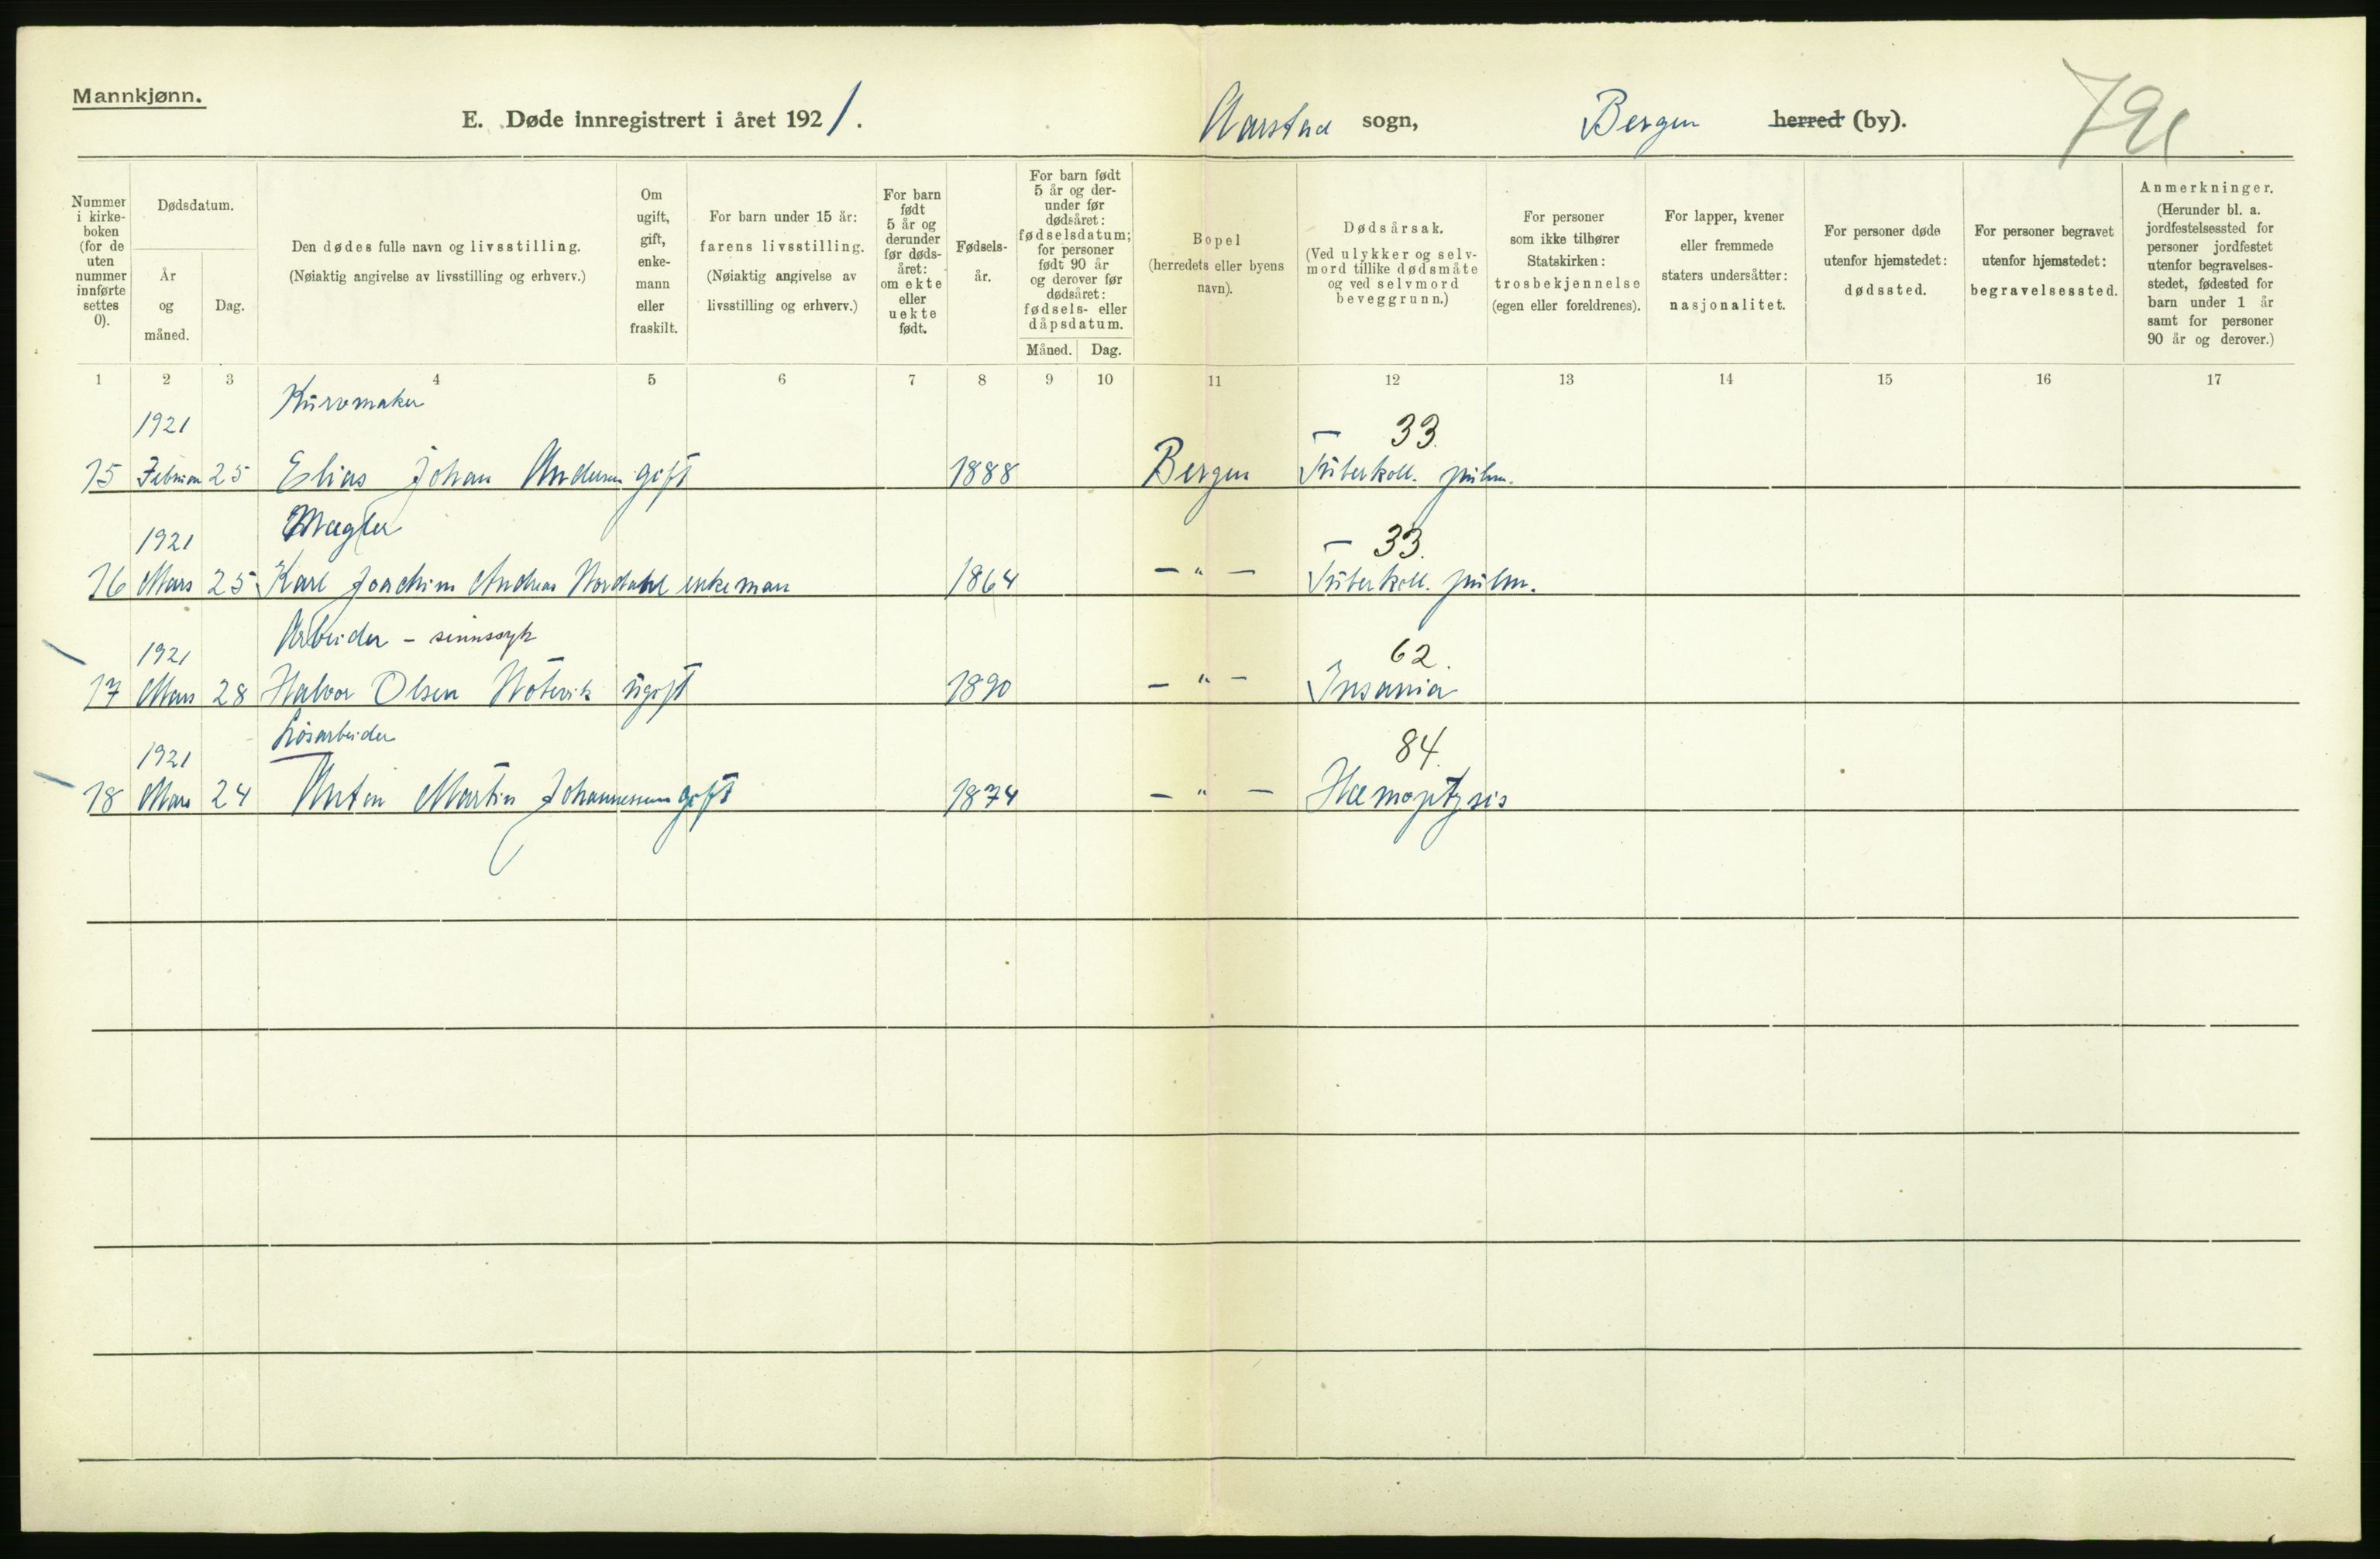 Mannkjønn.
E. Døde innregistrert i året 1921.
Aarstad sogn, Bergen herred (by).
Nummer i kirke-boken (for de uten nummer innførte settes 0).
Dødsdatum.
År og måned.
Dag.
Den dødes fulle navn og livsstilling.
(Nøiaktig angivelse av livsstilling og erhverv.)
Om ugift, gift, enke-mann eller fraskilt.
For barn under 15 år:
farens livsstilling.
(Nøiaktig angivelse av livsstilling og erhverv.)
For barn født 5 år og derunder før døds-året: om ekte eller uekte født.
Fødsels-år.
For barn født 5 år og der-under før dødsåret: fødselsdatum; for personer født 90 år og derover før dødsåret: fødsels- eller dåpsdatum.
Måned. Dag.
Bopel
(herredets eller byens navn).
Dødsårsak.
(Ved ulykker og selv-mord tillike dødsmåte og ved selvmord beveggrunn.)
For personer som ikke tilhører Statskirken: trosbekjennelse (egen eller foreldrenes).
For lapper, kvener eller fremmede staters undersåtter: nasjonalitet.
For personer døde utenfor hjemstedet: dødssted.
For personer begravet utenfor hjemstedet: begravelsessted.
Anmerkninger.
(Herunder bl. a. jordfestelsessted for personer jordfestet utenfor begravelses-stedet, fødested for barn under 1 år samt for personer 90 år og derover.)
1 2 3 4 5 6 7 8 9 10 11 12 13 14 15 16 17
Kurvmaker
1921 33.
15 Februar 25 Elias Johan Andersen gift 1888 Bergen Tuberkul. pulm.
Mægler
1921 33.
16 Mars 25 Karl Joachim Andreas Nordahl enkeman 1864 — " — Tuberkul. pulm.
Arbeider - sinnssyk
1921 62.
17 Mars 28 Halvor Olsen ugift 1890 — " — Insania
Løsarbeider
1921 84.
18 Mars 24 Anton Martin Johannessen gift 1874 — " — Hæmoptysis